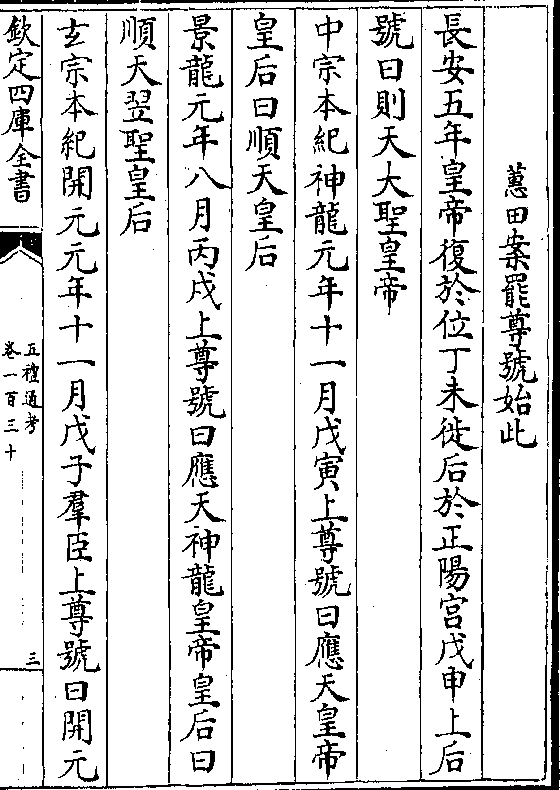 蕙田案罷尊號始此
長安五年皇帝復於位丁未徙后於正陽宮戊申上后
號曰則天大聖皇帝
中宗本紀神龍元年十一月戊寅上尊號曰應天皇帝
皇后曰順天皇后
景龍元年八月丙戌上尊號曰應天神龍皇帝皇后曰
順天翌聖皇后
玄宗本紀開元元年十一月戊子羣臣上尊號曰開元
欽定四庫全書
五禮通考
卷一百三十
三